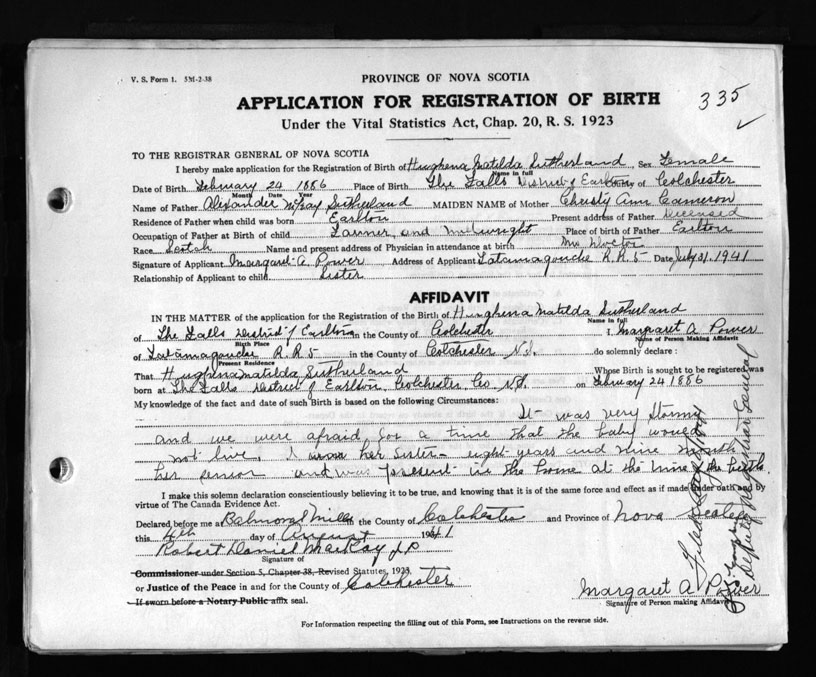 V. S. Form 1. 5M-2-38
PROVINCE OF NOVA SCOTIA
APPLICATION FOR REGISTRATION OF BIRTH
335
Under the Vital Statistics Act, Chap. 20, R. S. 1923
TO THE REGISTRAR GENERAL OF NOVA SCOTIA
I hereby make application for the Registration of Birth of Hughena Matilda Sutherland, Sex Female
Name in full
Date of Birth February 24 1886 Place of Birth The Falls District of Earltown County of Colchester
Month Date Year
Name of Father Alexander McKay Sutherland MAIDEN NAME of Mother Christy Ann Cameron
Residence of Father when child was born Earlton Present address of Father Deceased
Occupation of Father at Birth of child Farmer and Millwright Place of birth of Father Earlton
Race Scotch Name and present address of Physician in attendance at birth No Doctor
Signature of Applicant Margaret A. Power Address of Applicant Tatamagouche R. R. 5 Date July 31, 1941
Relationship of Applicant to child Sister
AFFIDAVIT
IN THE MATTER of the application for the Registration of the Birth of Hughena Matilda Sutherland
Name in full
of The Falls District of Earlton in the County of Colchester I, Margaret A Power
Birth Place Name of Person Making Affidavit
of Tatamagouche R.R 5 in the County of Colchester N.S. do solemnly declare :
Present Residence
That Hughena Matilda Sutherland Whose Birth is sought to be registered was
born at The Falls District of Earlton, Colchester Co. N.S. on February 24 1886
My knowledge of the fact and date of such Birth is based on the following Circumstances:
It was very Stormy
and we were afraid for a time that the baby would
not live. I was her sister - eight years and nine month
her senior and was present in the home at the time of the birth.
I make this solemn declaration conscientiously believing it to be true, and knowing that it is of the same force and effect as if made under oath and by
virtue of The Canada Evidence Act.
Declared before me at Balmoral Mills in the County of Colchester and Province of Nova Scotia
this 4th day of August 1941
Robert Daniel MacKay J.P.
Signature of
Commissioner under Section 5, Chapter 38, Revised Statutes, 1923.
or Justice of the Peace in and for the County of Colchester
If sworn before a Notary Public affix seal.
Margaret A. Power
Signature of Person making Affidavit
Deputy Registrar General
For Information respecting the filling out of this Form, see Instructions on the reverse side.